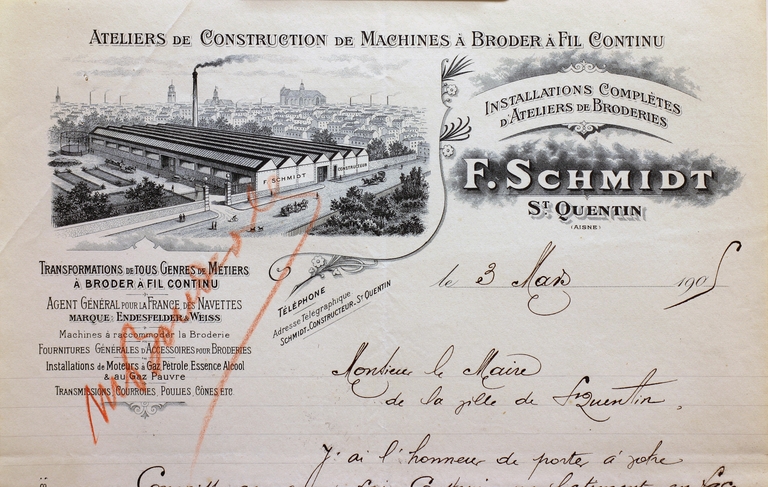 ATELIERS DE CONSTRUCTION DE MACHINES À BRODER À FIL CONTINU
INSTALLATIONS COMPLÈTES
D'ATELIERS DE BRODERIES
F. SCHMIDT
CONSTRUCTEUR
F. SCHMIDT
ST QUENTIN
(AISNE)
le 3 Mars 1905
TRANSFORMATIONS DE TOUS GENRES DE MÉTIERS
À BRODER À FIL CONTINU
AGENT GÉNÉRAL POUR LA FRANCE DES NAVETTES
MARQUE: ENDESFELDER & WEISS
Machines à raccommoder la Broderie
FOURNITURES GÉNÉRALES D'ACCESSOIRES POUR BRODERIES
Installations de Moteurs à Gaz Pétrole Essence Alcool
& au Gaz Pauvre
TRANSMISSIONS, COURROIES, POULIES, CÔNES ETC.
TÉLÉPHONE
Adresse Télégraphique:
SCHMIDT, CONSTRUCTEUR-ST QUENTIN
Monsieur le Maire
de la ville de St Quentin,
J'ai l'honneur de porter à votre